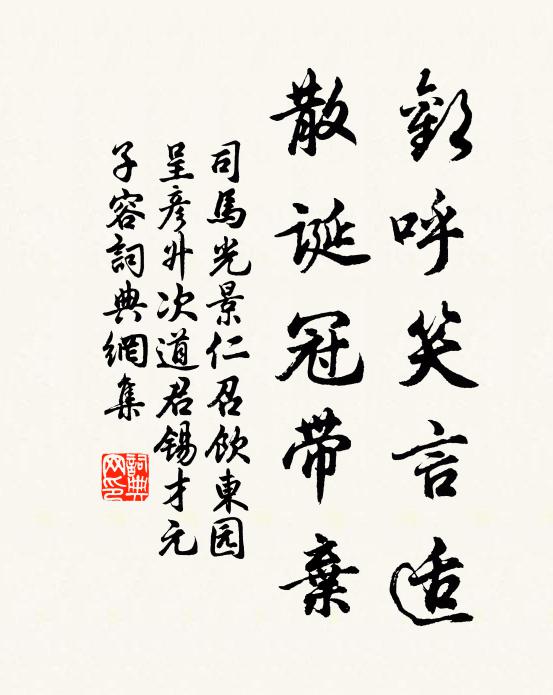 歡呼笑言适
散誕冠帶棄
司馬光景仁召飲東园
呈彥升次道君錫才元
子容詞典網集
詞典
网印